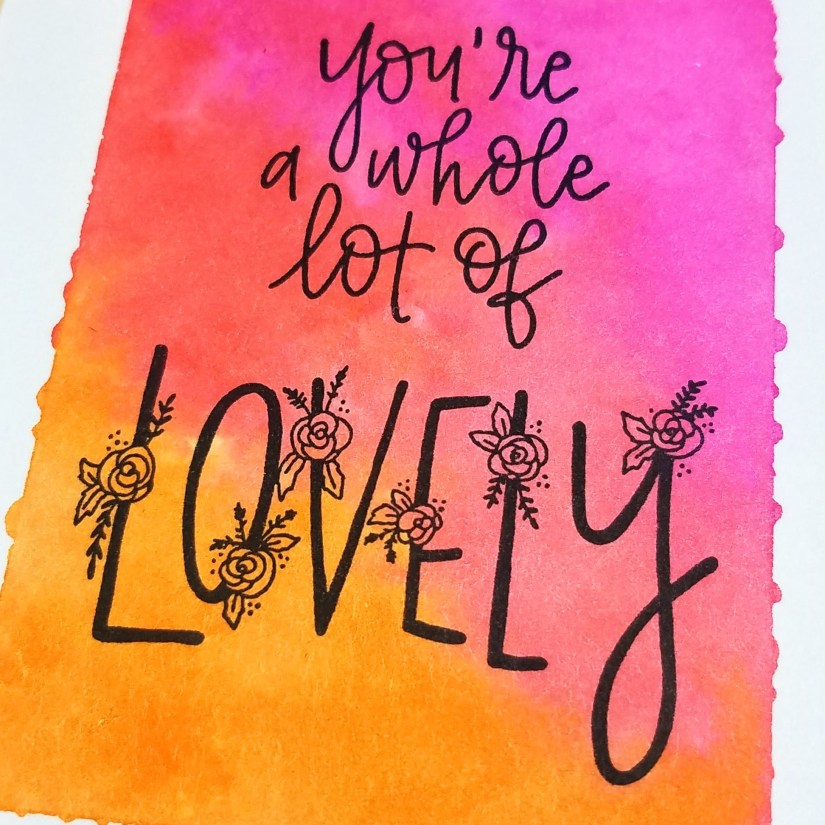 you're
a whole
lot of
LOVELY